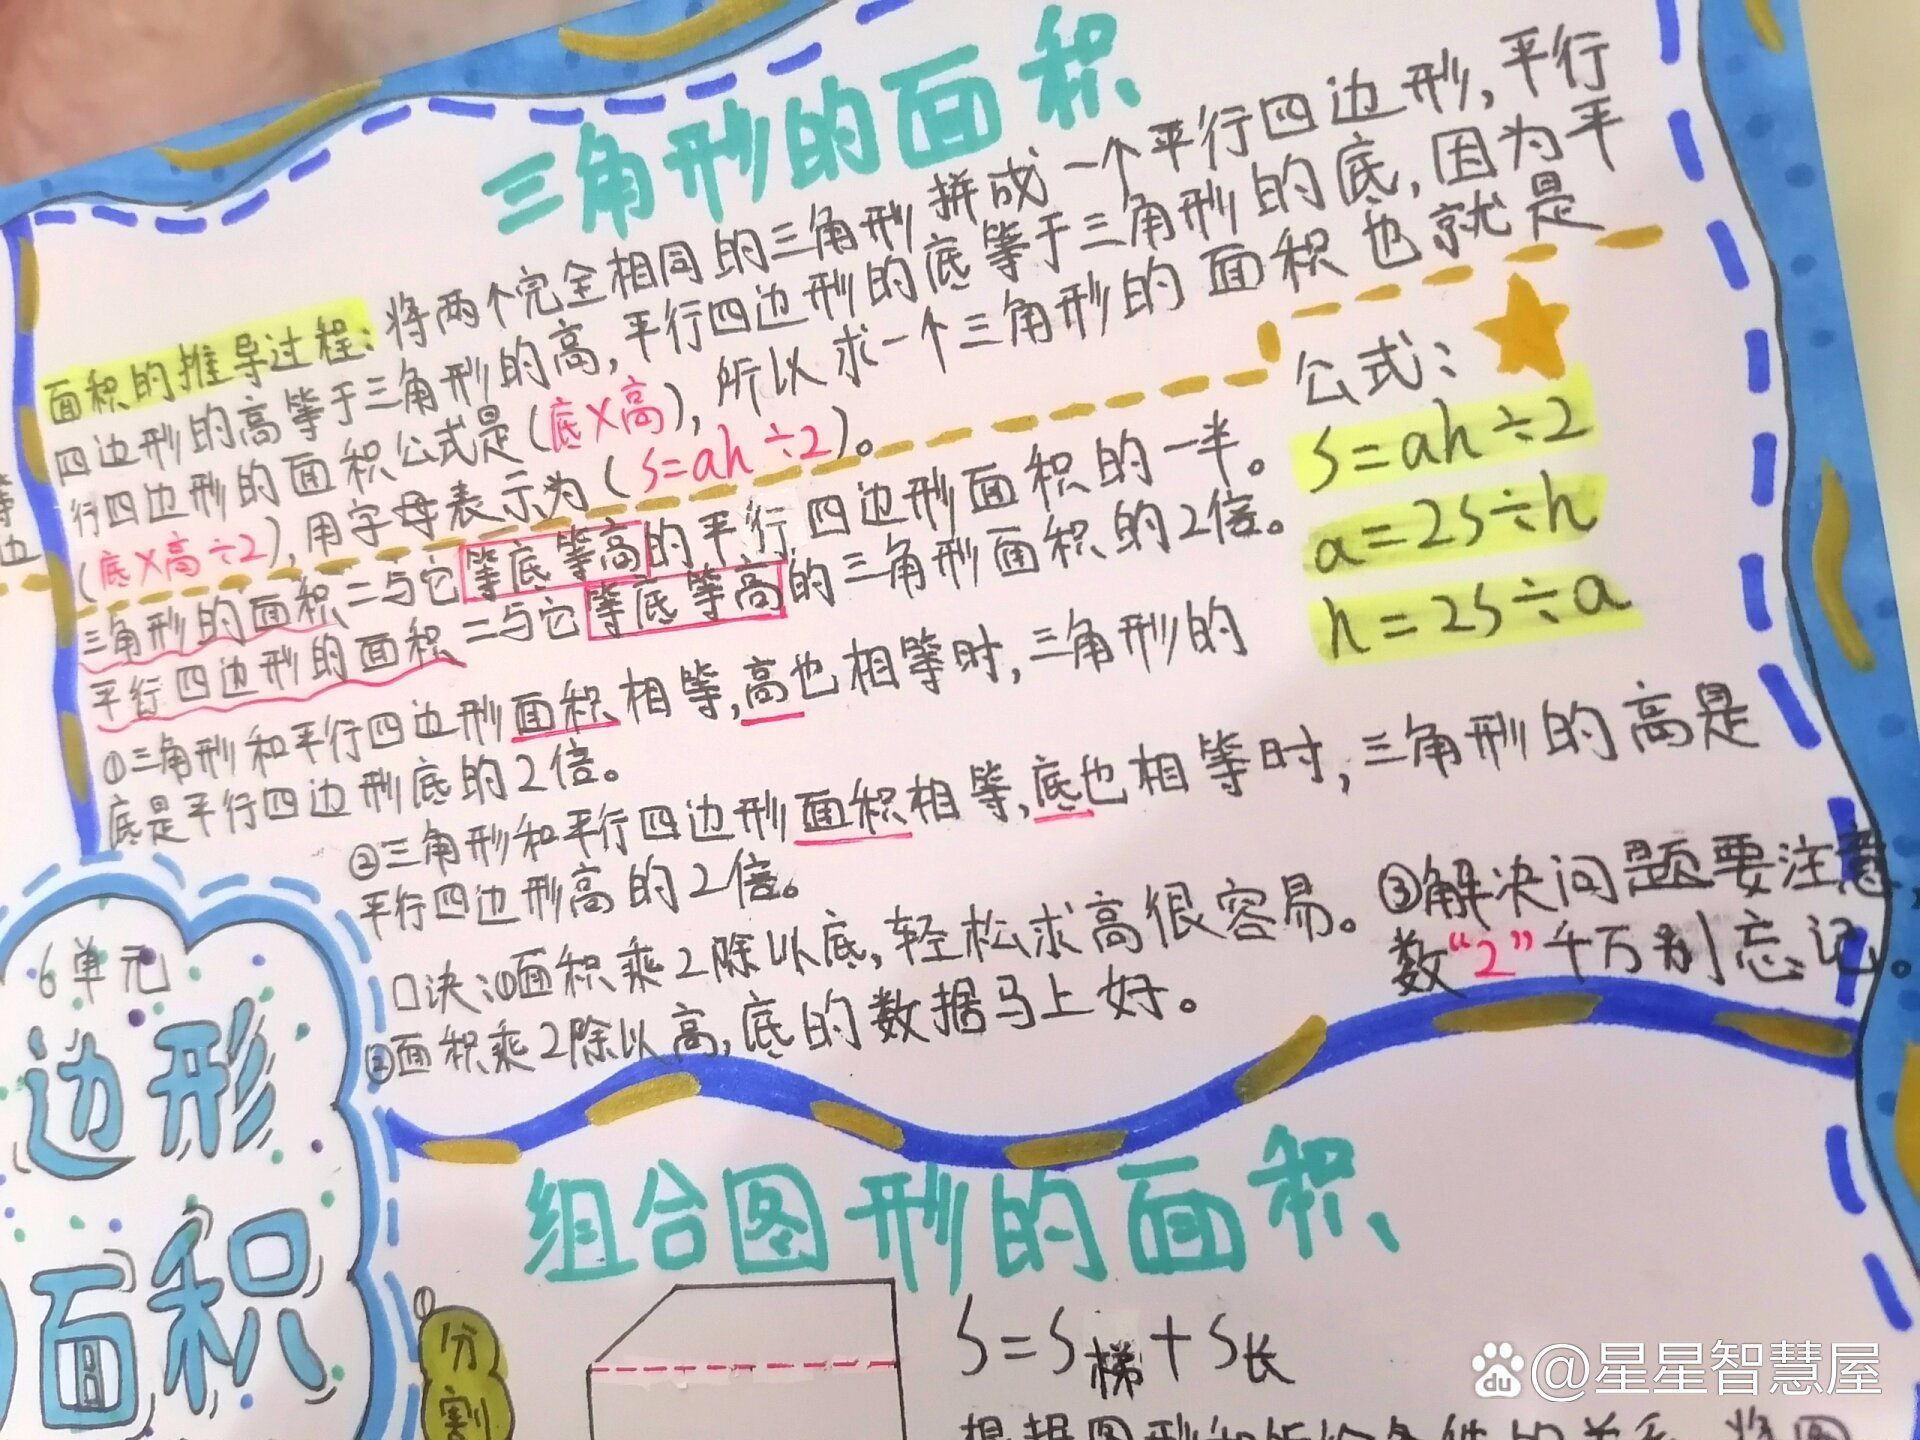 三角形的面积
面积的推导过程:将两个完全相同的三角形拼成一个平行四边形,平行
四边形的高等于三角形的高,平行四边形的底等于三角形的底,因为平
行四边形的面积公式是(底×高),所以求一个三角形的面积也就是
(底×高÷2),用字母表示为(S=ah÷2)。
三角形的面积=与它等底等高的平行四边形面积的一半。
平行四边形的面积=与它等底等高的三角形面积的2倍。
公式:
S=ah÷2
a=2S÷h
h=2S÷a
①三角形和平行四边形面积相等,高也相等时,三角形的
底是平行四边形底的2倍。
②三角形和平行四边形面积相等,底也相等时,三角形的高是
平行四边形高的2倍。
口决:①面积乘2除以底,轻松求高很容易。
②面积乘2除以高,底的数据马上好。
③解决问题要注意,
数“2”千万别忘记。
6单元
边形
面积
组合图形的面积
①
分
割
S=S梯+S长
du @星星智慧屋